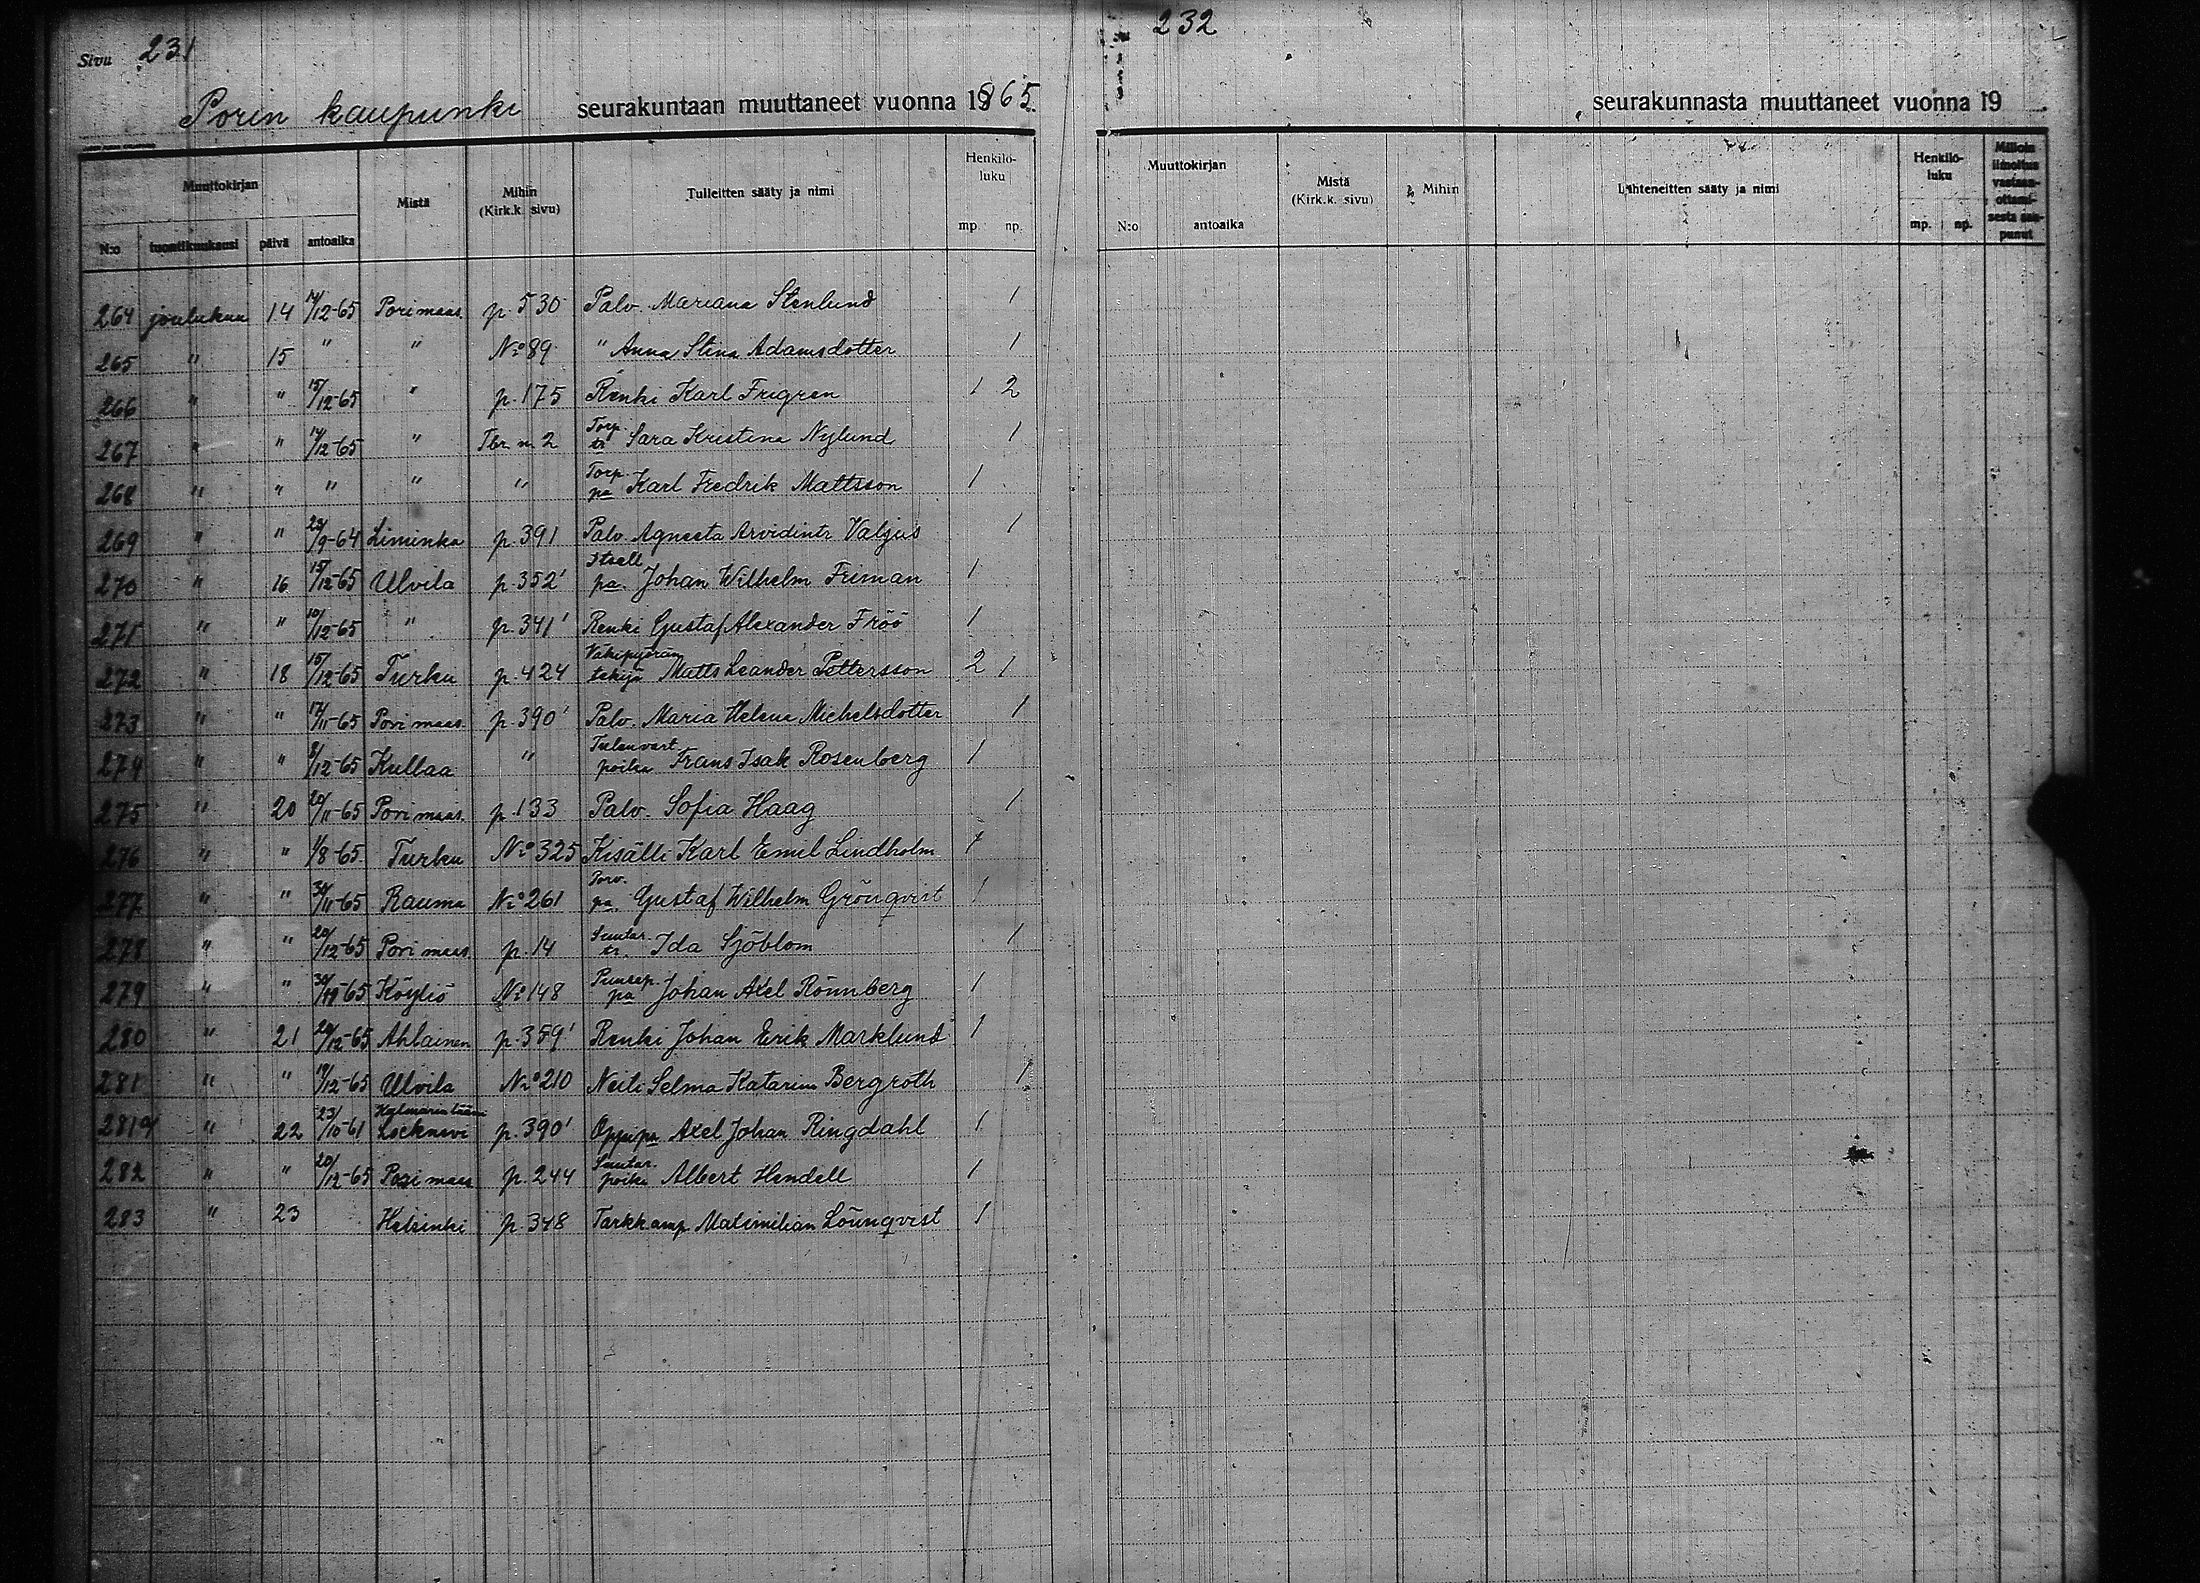 Sivu 231
Porin kaupunki seurakuntaan muuttaneet vuonna 1865
Muuttokirjan Mistä Mihin (Kirk.k. sivu) Tulleitten sääty ja nimi Henkilö-luku
N:o tuontikuukausi päivä antoaika mp. np.
264 joulukuu 14 14/12-65 Pori maas. p. 530 Palv. Mariana Stenlund 1
265 " 15 " " No 89 " Anna Stina Adamsdotter 1
266 " " 15/12-65 " p. 175 Renki Karl Frigren 1 2
267 " " 14/12-65 " Tbr. n. 2 Torp. tr. Sara Kristina Nylund 1
268 " " " " " Torp. pa Karl Fredrik Mattsson 1
269 " " 23/9-64 Liminka p. 391 Palv. Agneeta Arvidintr Valjus 1
270 " 16 15/12-65 Ulvila p. 352' Itsell. pa. Johan Wilhelm Friman 1
271 " " 10/12-65 " p. 341' Renki Gustaf Alexander Fröö 1
272 " 18 15/12-65 Turku p. 424 Väkipyörän tekijä Matts Leander Pettersson 2 1
273 " " 17/11-65 Pori maas. p. 390' Palv. Maria Helena Michelsdotter 1
274 " " 8/12-65 Kullaa " Tulenvart. poika Frans Isak Rosenberg 1
275 " 20 20/11-65 Pori maas. p. 133 Palv. Sofia Haag 1
276 " " 1/8-65 Turku No 325 Kisälli Karl Emil Lindholm 1
277 " " 30/11-65 Rauma No 261 Porv. pa. Gustaf Wilhelm Grönqvist 1
278 " " 20/12-65 Pori maas. p. 14 Suutar. tr. Ida Sjöblom 1
279 " " Köyliö No 148 Puusep. pa Johan Axel Rönnberg 1
280 " 21 20/12-65 Ahlainen p. 359' Renki Johan Erik Marklund 1
281 " " 19/12-65 Ulvila No 210 Neiti Selma Katarina Bergroth 1
281a " 22 23/10-61 Kalmarin lääni Locknevi p. 390' Oppipa Axel Johan Ringdahl 1
282 " " 20/12-65 Pori maas p. 244 Suutar. poika Albert Hendell 1
283 " 23 Helsinki p. 348 Tarkk.amp Maximilian Lönnqvist 1
232
seurakunnasta muuttaneet vuonna 19
Muuttokirjan Mistä (Kirk.k. sivu) Mihin Lähteneitten sääty ja nimi Henkilö-luku Milloin ilmoitus vastaan-ottami-sesta saa-punut
N:o antoaika mp. np.